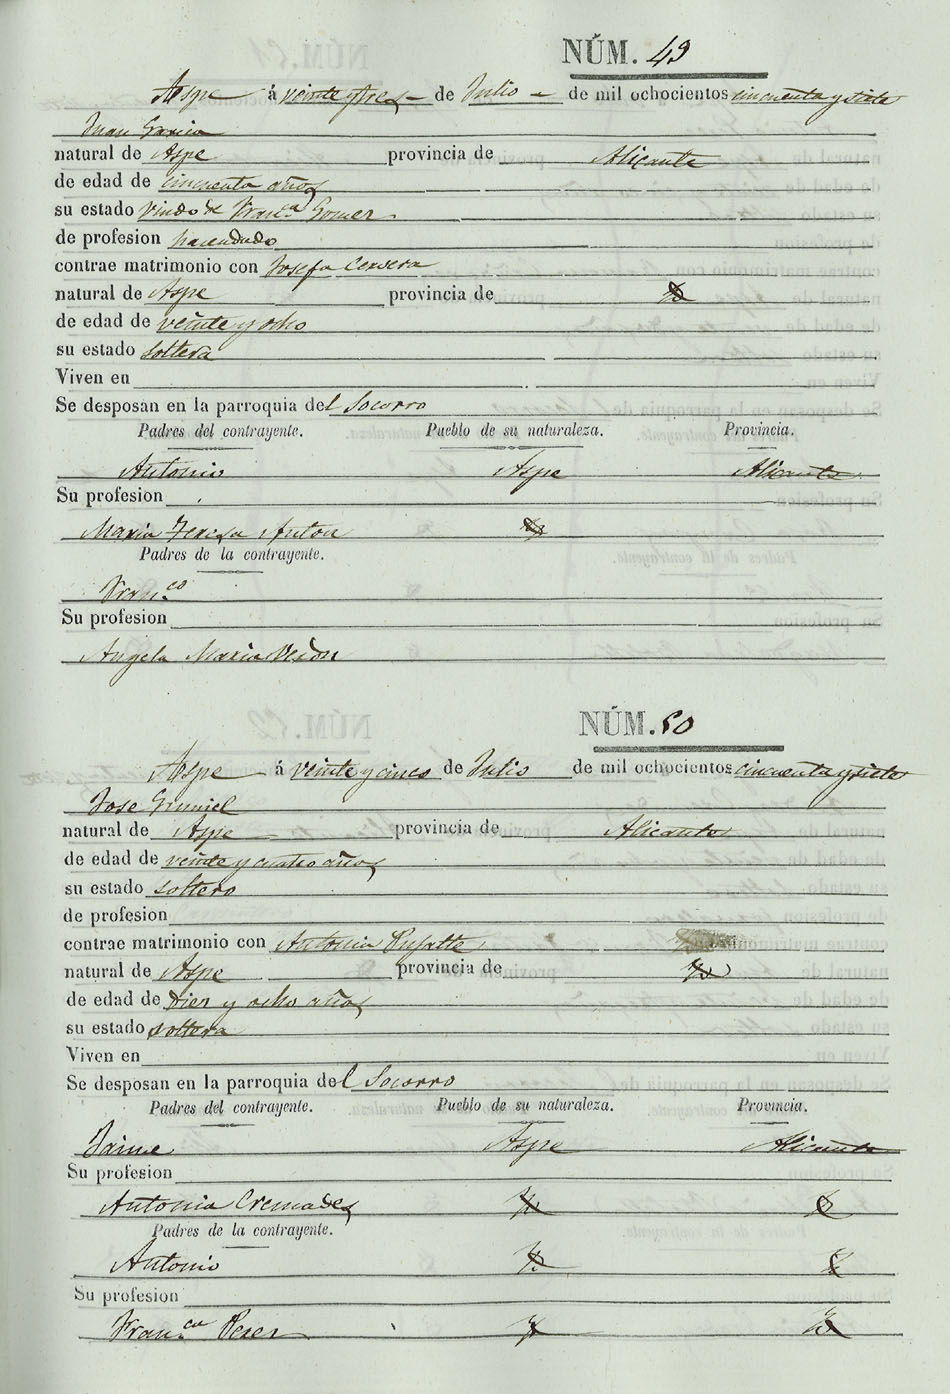 NÚM. 49
Aspe á veinte y tres de Julio de mil ochocientos cincuenta y siete
Juan Garcia
natural de Aspe provincia de Alicante
de edad de cincuenta años
su estado Viudo de Fran.ca Gomez
de profesion hacendado
contrae matrimonio con Josefa Cervera
natural de Aspe provincia de
de edad de veinte y ocho
su estado soltera
Viven en
Se desposan en la parroquia del Socorro
Padres del contrayente. Pueblo de su naturaleza. Provincia.
Antonio Aspe Alicante
Su profesion
Maria Teresa Anton
Padres de la contrayente.
Fran.co
Su profesion
Angela Maria
NÚM. 50
Aspe á veinte y cinco de Julio de mil ochocientos cincuenta y siete
Jose
natural de Aspe provincia de Alicante
de edad de veinte y cuatro años
su estado soltero
de profesion
contrae matrimonio con Antonia Pujalte
natural de Aspe provincia de
de edad de diez y ocho años
su estado soltera
Viven en
Se desposan en la parroquia del Socorro
Padres del contrayente. Pueblo de su naturaleza. Provincia.
Jaime Aspe Alicante
Su profesion
Antonia Cremades
Padres de la contrayente.
Antonio
Su profesion
Fran.ca Perez